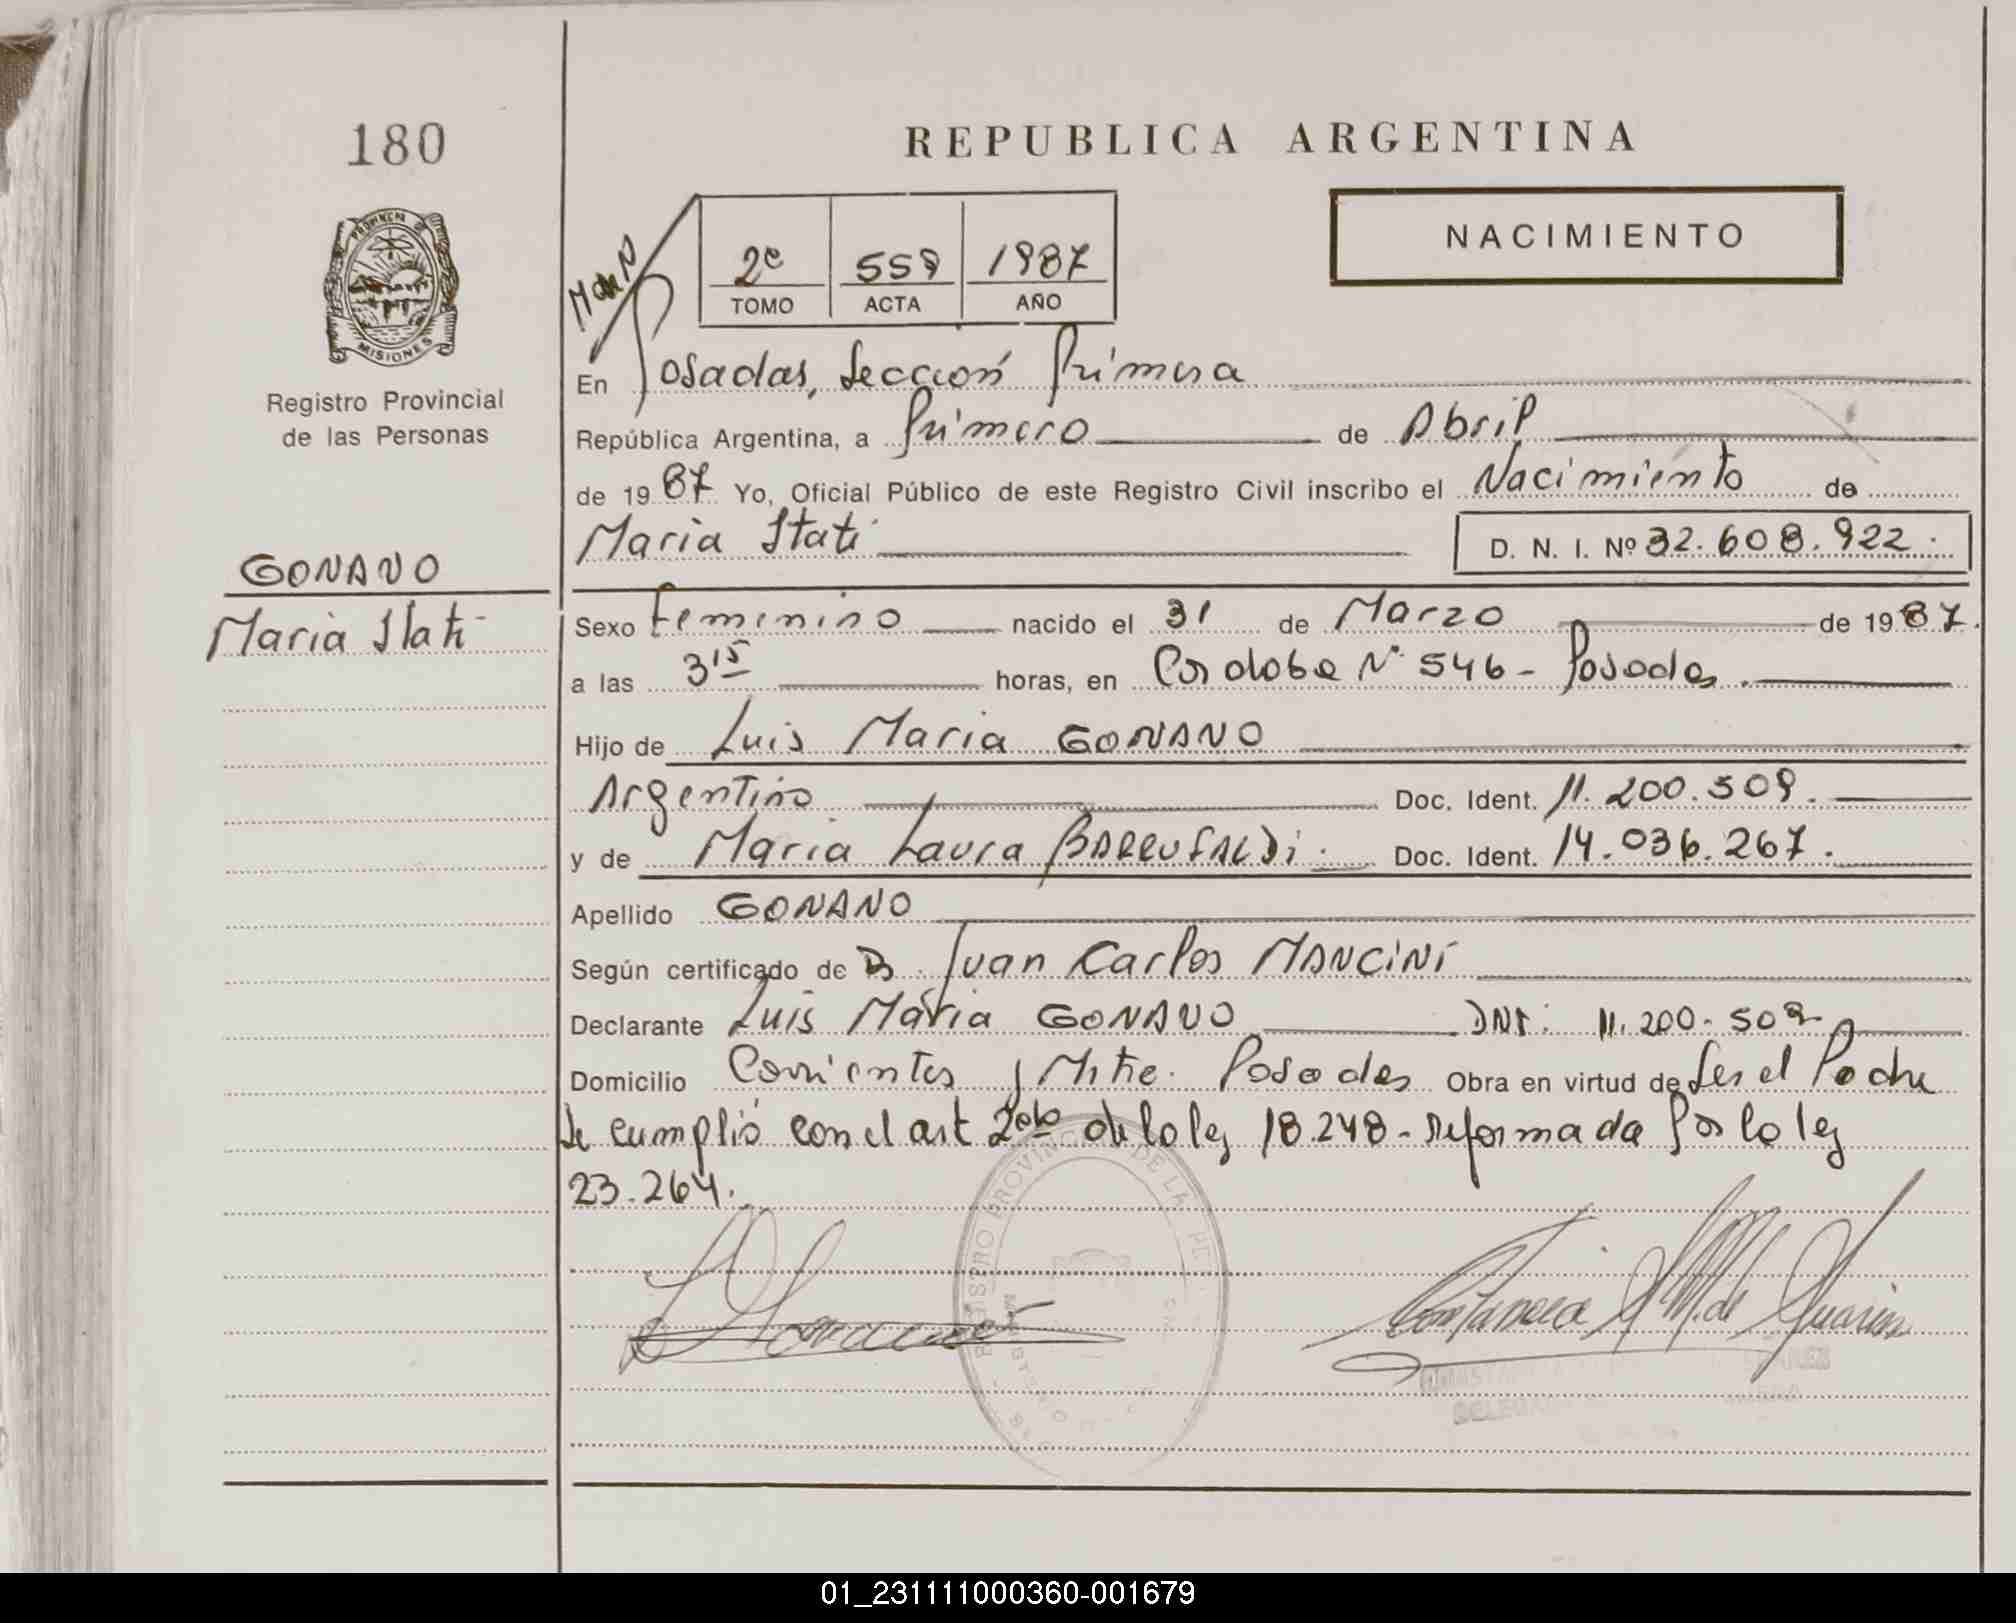 180
REPUBLICA ARGENTINA
NACIMIENTO
M de N
2º 559 1987
TOMO ACTA AÑO
PROVINCIA DE MISIONES
Registro Provincial
de las Personas
En Posadas, Sección Primera
República Argentina, a Primero de Abril
de 1987 Yo, Oficial Público de este Registro Civil inscribo el Nacimiento de
Maria Itati D. N. I. Nº 32.608.922.
GONANO
Maria Itati
Sexo Femenino nacido el 31 de Marzo de 1987.
a las 3 15 horas, en Cordoba Nº 546 - Posadas.
Hijo de Luis Maria GONANO
Argentino Doc. Ident. 11.200.509.
y de Maria Laura BARRUFALDI. Doc. Ident. 14.036.267.
Apellido GONANO
Según certificado de D. Juan Carlos MANCINI
Declarante Luis Maria GONANO DNI: 11.200.509
Domicilio Corrientes y Mitre. Posadas Obra en virtud de Ser el Padre
Se cumplió con el art 2do de la ley 18.248 - reformada por la ley
23.264.
REGISTRO PROVINCIAL DE LAS PE
01_231111000360-001679